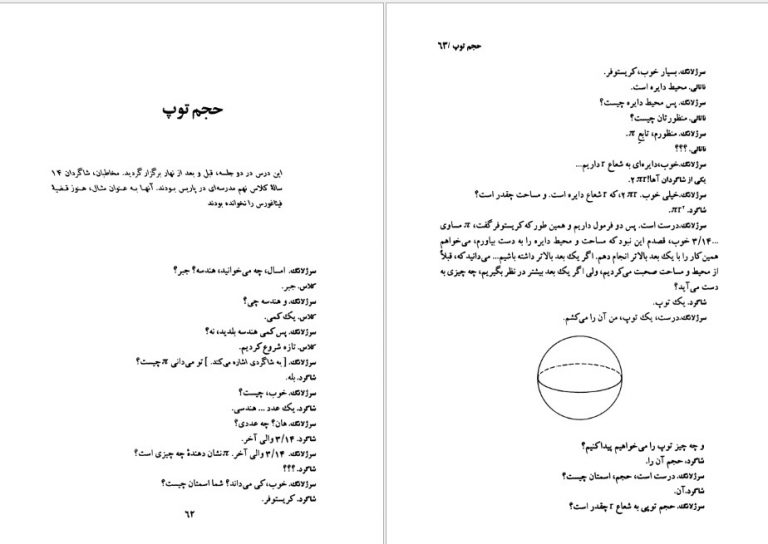 حجم توپ
این درس در دو جلسه، قبل و بعد از نهار برگزار گردید. مخاطبان، شاگردان ۱۴
سالهٔ کلاس نهم مدرسه‌ای در پاریس بودند. آنها به عنوان مثال، هنوز قضیهٔ
فیثاغورس را نخوانده بودند
سرژلانگ. امسال، چه می‌خوانید، هندسه؟ جبر؟
کلاس. جبر.
سرژلانگ. و هندسه چی؟
کلاس. یک کمی.
سرژلانگ. پس کمی هندسه بلدید، نه؟
کلاس. تازه شروع کردیم.
سرژلانگ. [ به شاگردی اشاره می‌کند. ] تو می‌دانی π چیست؟
شاگرد. بله.
سرژلانگ. خوب، چیست؟
شاگرد. یک عدد ... هندسی.
سرژلانگ. هان؟ چه عددی؟
شاگرد. ۳/۱۴ والی آخر.
سرژلانگ. ۳/۱۴ والی آخر. π نشان دهندهٔ چه چیزی است؟
شاگرد. ؟؟؟
سرژلانگ. خوب، کی می‌داند؟ شما اسمتان چیست؟
شاگرد. کریستوفر.
۶۲
حجم توپ /۶۳
سرژلانگ. بسیار خوب، کریستوفر.
ناتالی. محیط دایره است.
سرژلانگ. پس محیط دایره چیست؟
ناتالی. منظورتان چیست؟
سرژلانگ. منظورم، تابع π.
ناتالی. ؟؟؟
سرژلانگ. خوب، دایره‌ای به شعاع r داریم...
یکی از شاگردان آها! ۲πr.
سرژلانگ. خیلی خوب. ۲πr، که r شعاع دایره است. و مساحت چقدر است؟
شاگرد. πr².
سرژلانگ. درست است. پس دو فرمول داریم و همین طور که کریستوفر گفت، π مساوی
۳/۱۴... خوب، قصدم این نبود که مساحت و محیط دایره را به دست بیاورم، می‌خواهم
همین کار را با یک بعد بالاتر انجام دهم. اگر یک بعد بالاتر داشته باشیم... می‌دانید که، قبلاً
از محیط و مساحت صحبت می‌کردیم، ولی اگر یک بعد بیشتر در نظر بگیریم، چه چیزی به
دست می‌آید؟
شاگرد. یک توپ.
سرژلانگ. درست، یک توپ، من آن را می‌کشم.
و چه چیز توپ را می‌خواهیم پیدا کنیم؟
شاگرد. حجم آن را.
سرژلانگ. درست است، حجم، اسمتان چیست؟
شاگرد. آن.
سرژلانگ. حجم توپی به شعاع r چقدر است؟